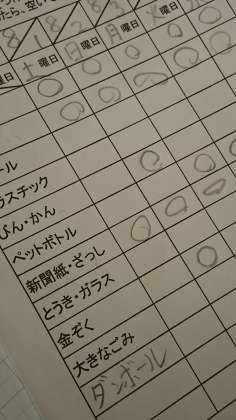 たら、空い
8 8 8 8
1 2 3
曜日 土曜日 日曜日 月曜日 火曜日
ール
ラスチック
びん・かん
ペットボトル
新聞紙・ざっし
とうき・ガラス
金ぞく
大きなごみ
ダンボール